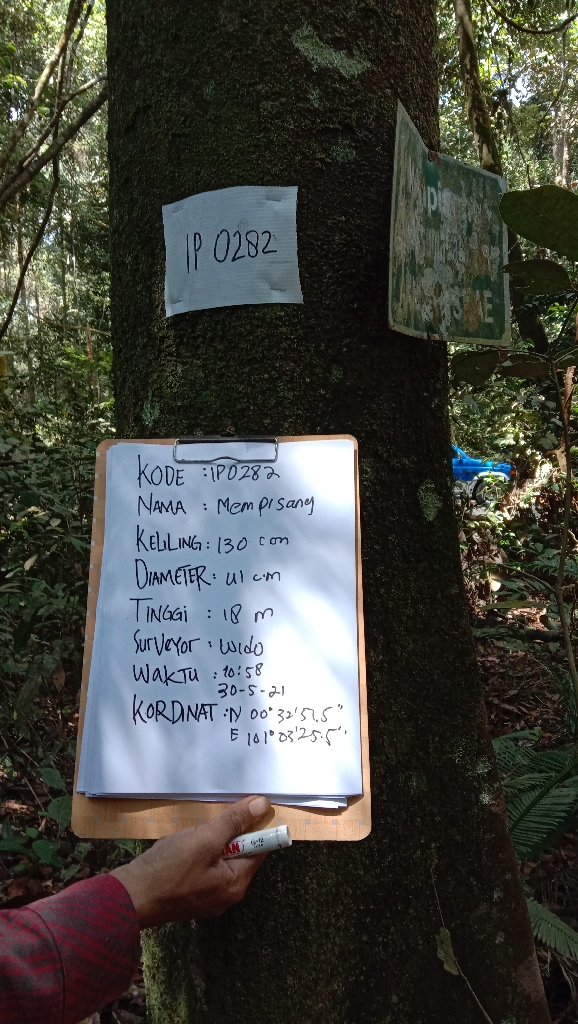 IP 0282
KODE : IP0282
NAMA : Mempisang
KELILING : 130 cm
DIAMETER : 41 cm
TINGGI : 18 m
Surveyor : Wido
WAKTU : 10:58
30-5-21
KORDINAT : N 00° 32' 51.5"
E 101° 03' 25.5"